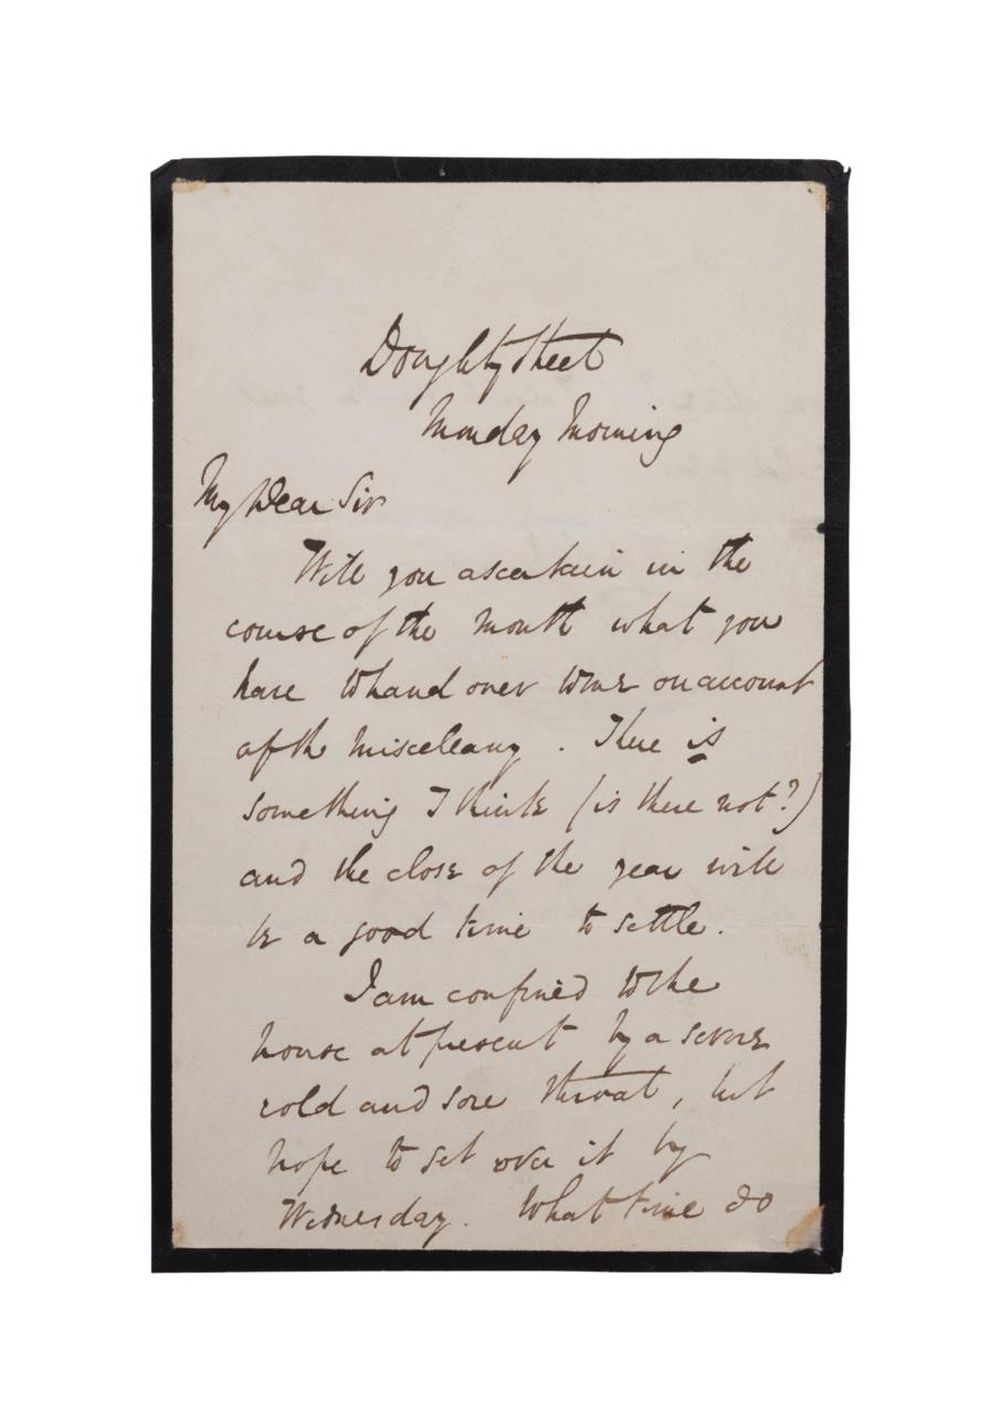 Doughty Street
Monday Morning
My Dear Sir
Will you ascertain in the
course of the month what you
have to hand over to me on account
of the Miscellany. There is
something I think (is there not?)
and the close of the year will
be a good time to settle.
I am confined to the
house at present by a severe
cold and sore throat, but
hope to get over it by
Wednesday. What time do